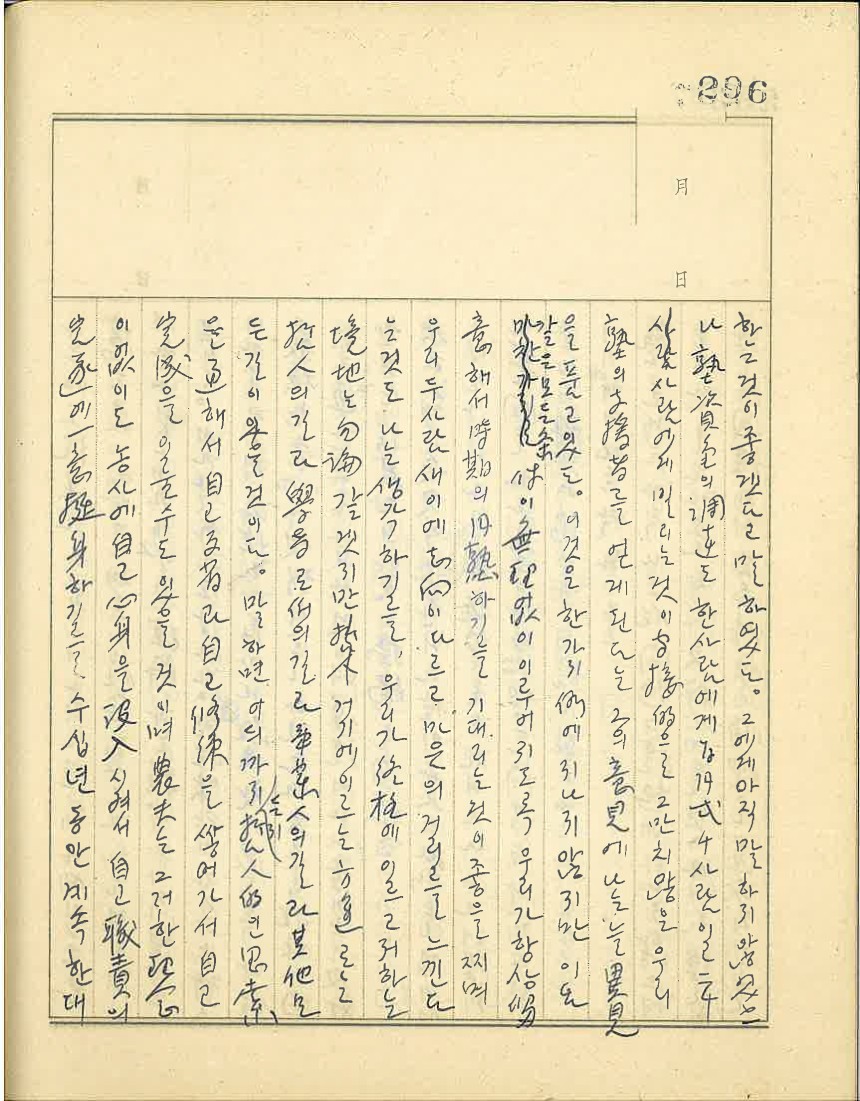 296
月
日
하는것이 좋겠다고 말하였다. 그에게 아직 말하지 않엇으
나 塾資金의 調達도 한사람에게 四式 4사람 일
사람사람에게 밀리는것이 直接的으로 그만치 않을 우리
塾의 支撐者를 얻게된다는 그의 意見에 나는 늘 異見
을 품고있다. 이것은 한가지 例에 지나지 않지만 이와
같은 모든 條
이 無理없이 이루어지도록 우리가 항상
意해서 時期의 円熟하기를 기대리는것이 좋을찌며
우리 두사람 새이에 이 다르고 마음의 거리를 느낀다
는것도 나는 생각하기를, 우리가 終極에 이르고저하는
境地는 勿論 같겟지만 거기에 이르는 方途로는
哲人의길과 學者로써의길과 事業人의길과 其他 모
든길이 있을것이다. 말하면 어디까지 哲人的인 思索
을 通해서 自己反省과 自己修練을 쌓어가서 自己
完成을 이룰수도 있을것이며 農夫는 그러한 理念
이없이도 농사에 自己心身을 沒入시켜서 自己職責의
完遂에 一意挺身하기를 수십년동안 계속한대